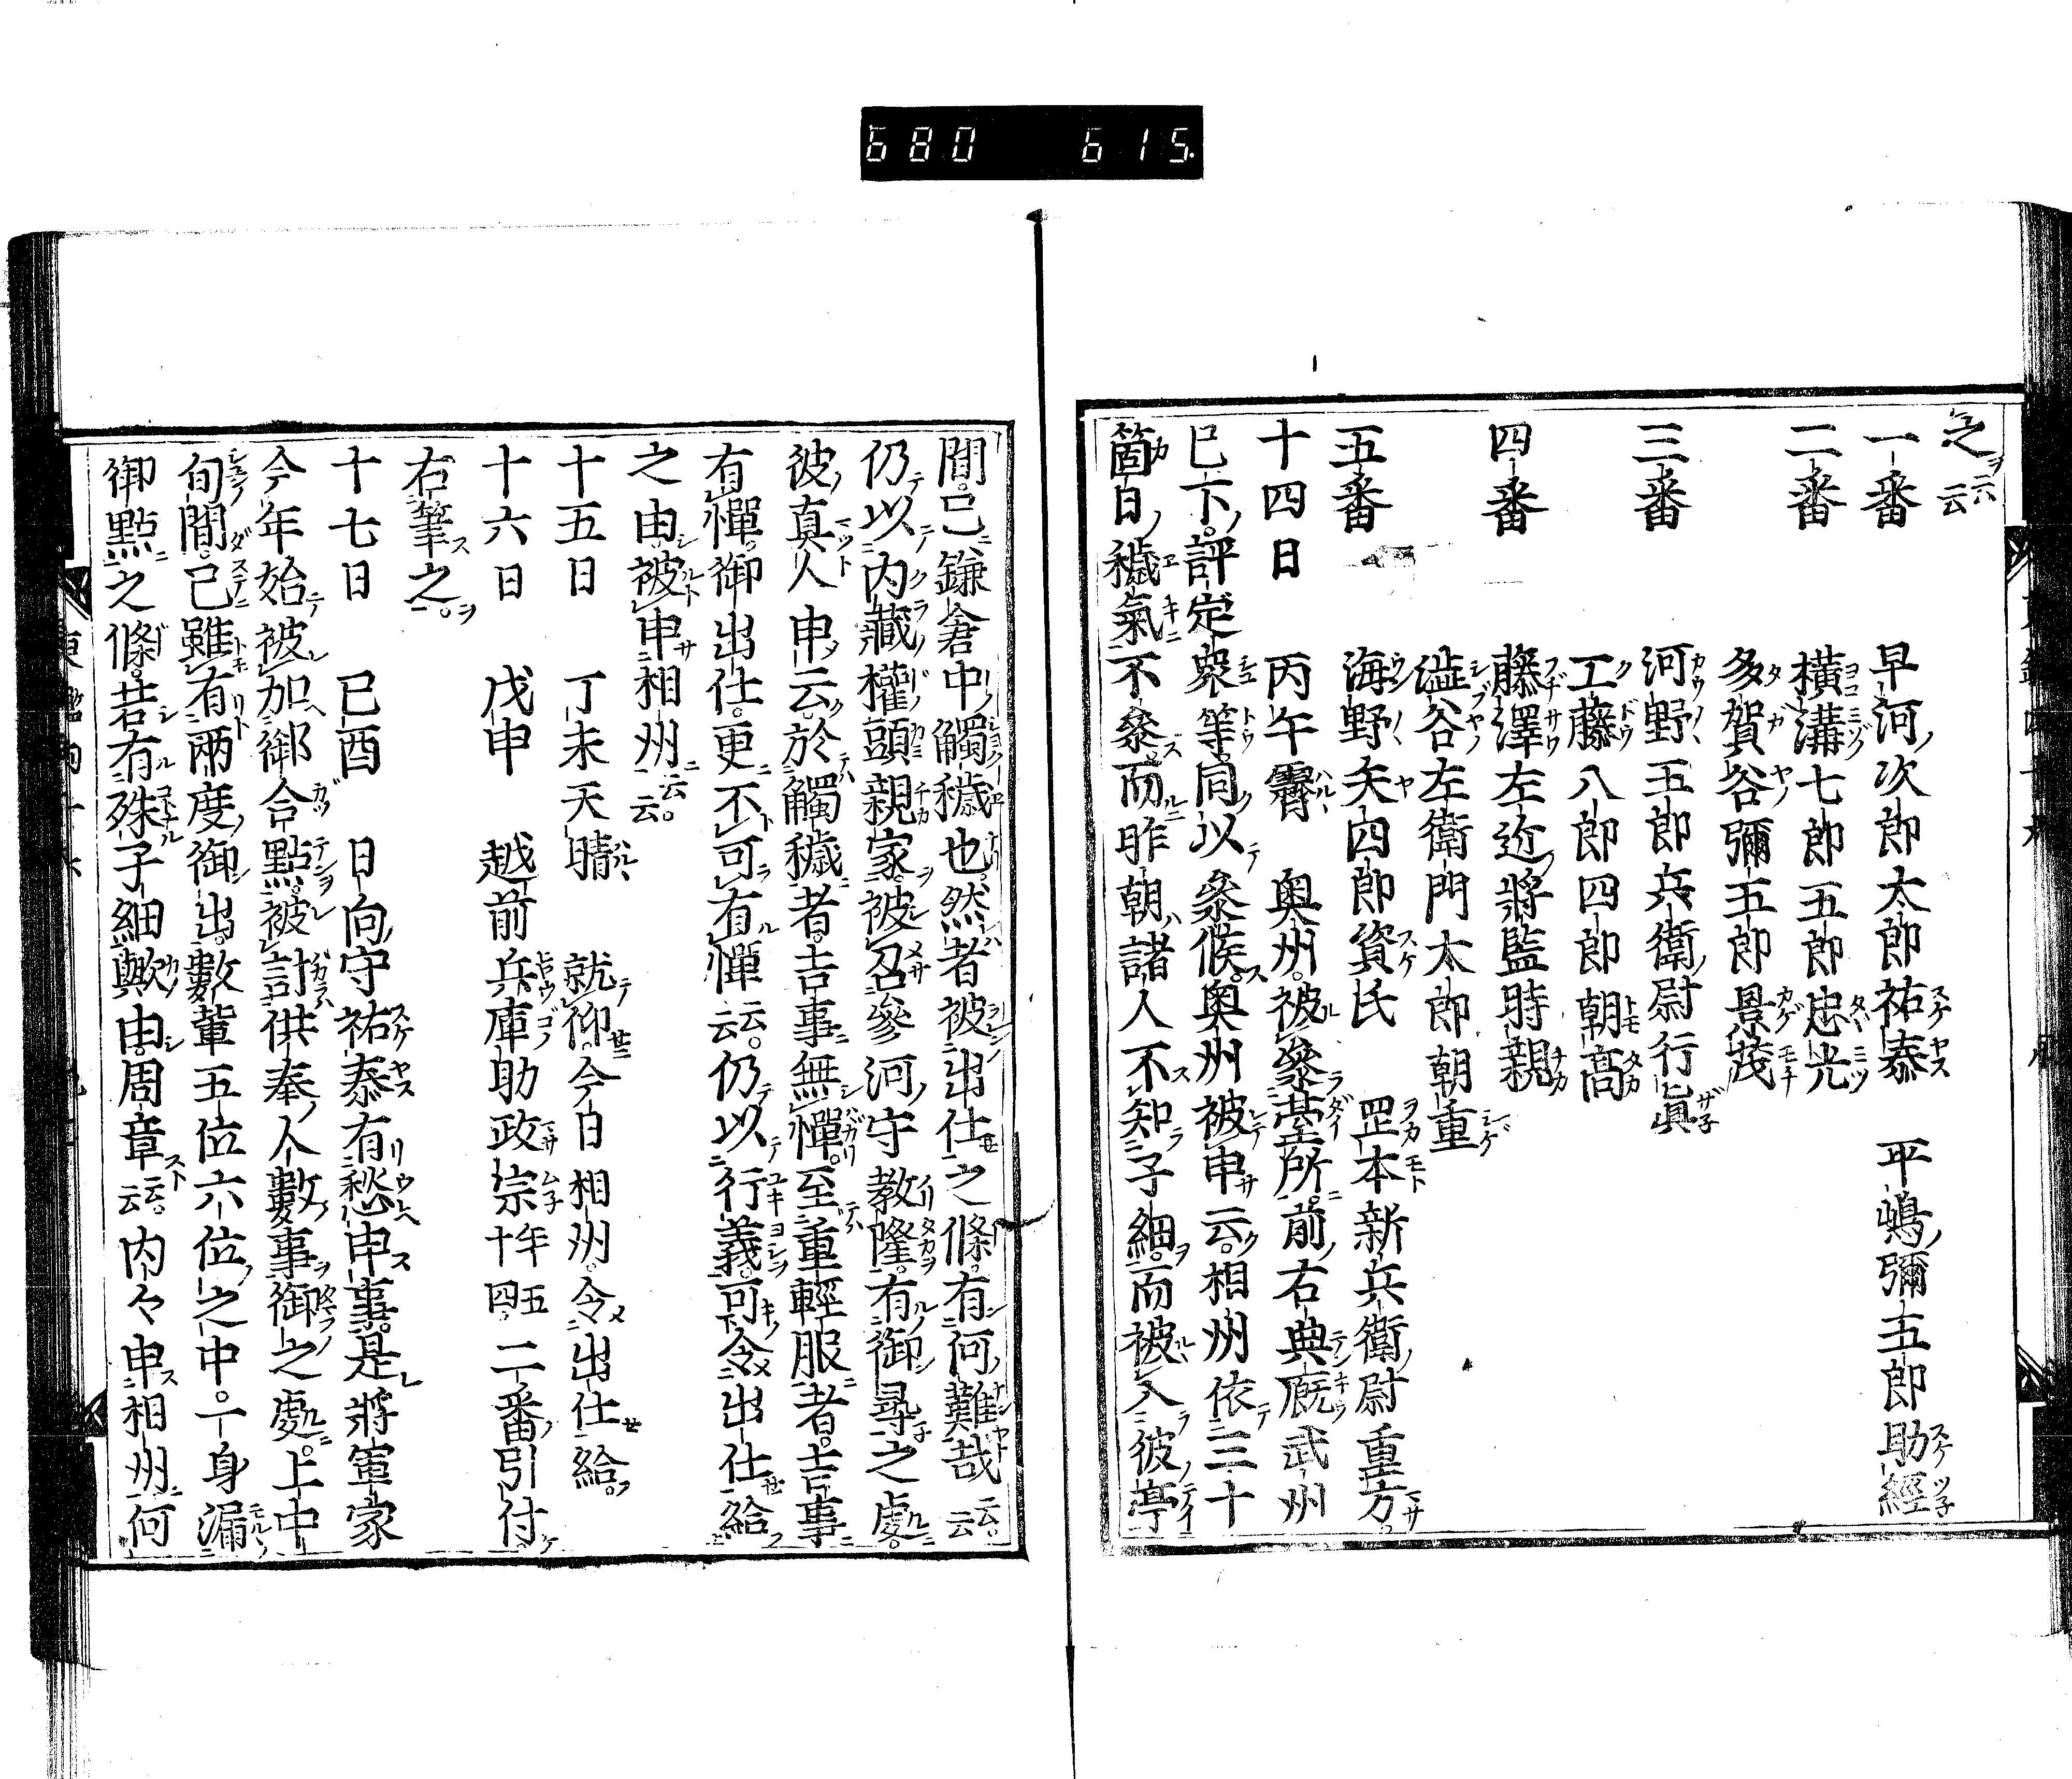 680 615.
之云云
一番 早河次郎太郎祐泰 平嶋彌五郎助經
二番 横溝七郎五郎忠光
多賀谷彌五郎景茂
三番 河野五郎兵衛尉行眞
工藤八郎四郎朝髙
四番 藤澤左近將監時親
澁谷左衛門太郎朝重
五番 海野矢四郎資氏 罡本新兵衛尉重方
十四日 丙午霽 奥州被參臺所前右典厩武州
已下評定衆等同以參候奥州被申云相州依三十
箇日穢氣不參而昨朝諸人不知子細而被入彼亭
間已鎌倉中觸穢也然者被出仕之條有何難哉云云
仍以内藏權頭親家被召參河守教隆有御尋之處
彼真人申云於觸穢者吉事無憚至重輕服者吉事
有憚御出仕更不可有憚云云仍以行義可令出仕給
之由被申相州云云
十五日 丁未天晴 就仰今日相州令出仕給
十六日 戊申 越前兵庫助政宗年五十四二番引付
右筆之
十七日 已酉 日向守祐泰有愁申事是將軍家
今年始被加御合點被計供奉人數事御之處上中
旬間已雖有兩度御出數輩五位六位之中一身漏
御點之條若有殊子細歟由周章云云内々申相州何